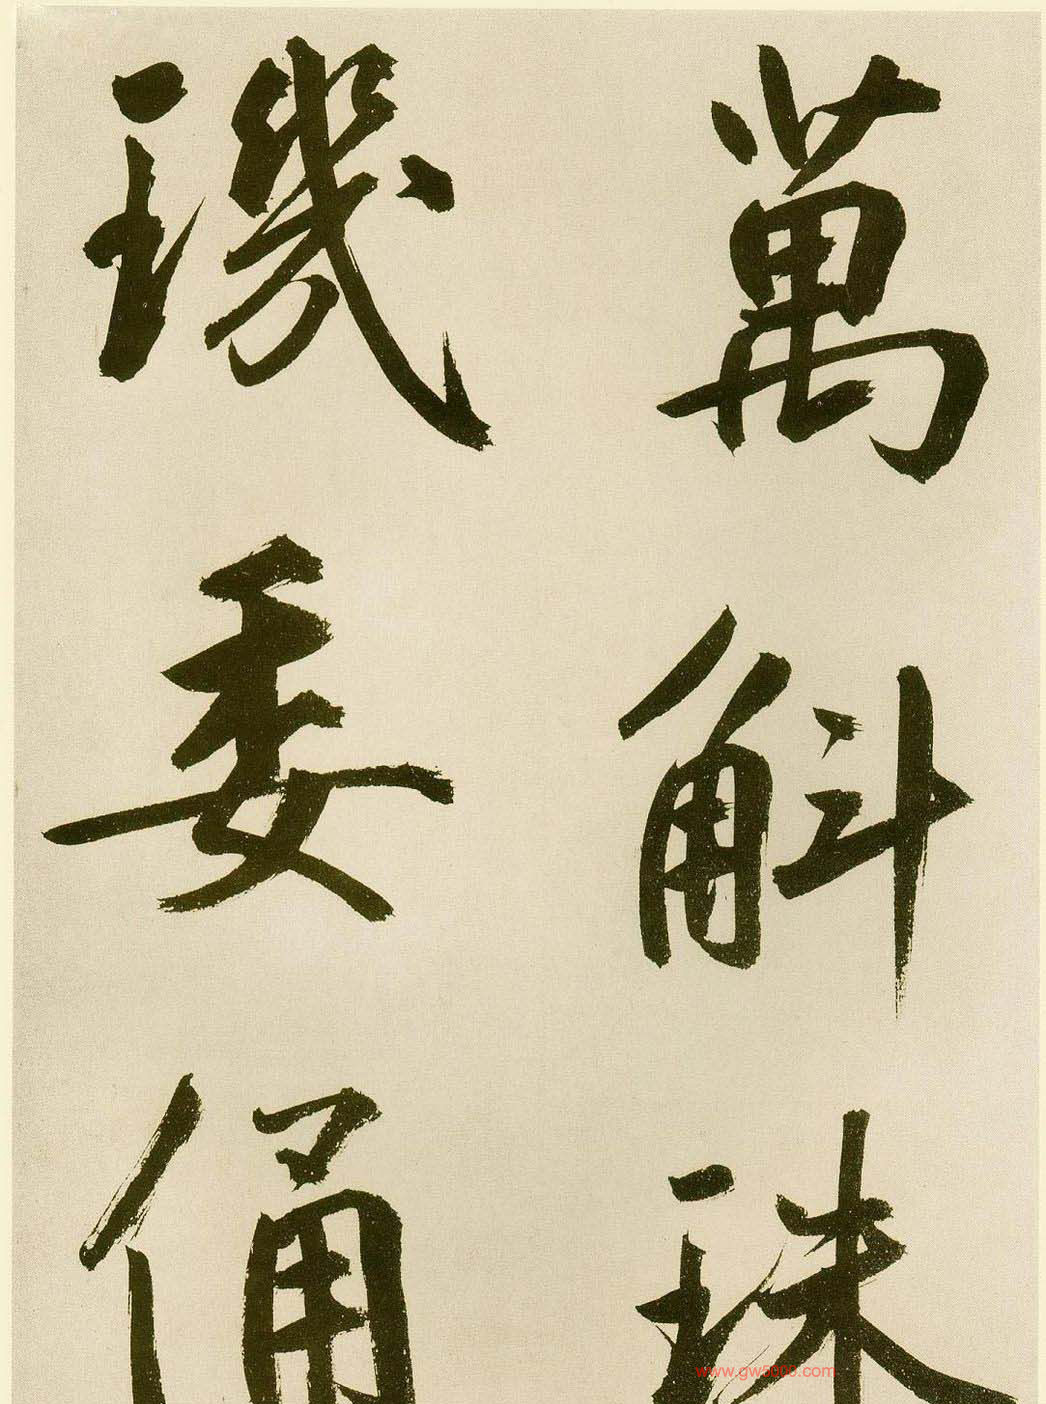 萬斛珠
璣委俑
www.gw5000.com